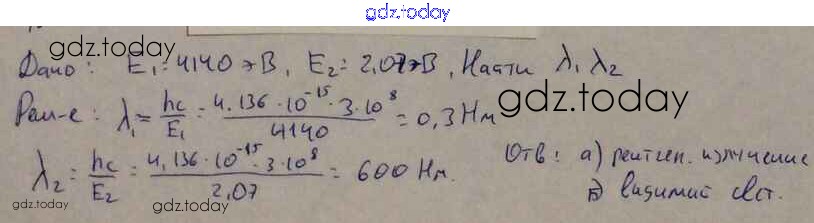 gdz.today
gdz.today
Дано: E₁=4140эВ, E₂=2,07эВ, Найти λ₁ λ₂
Реш-е: λ₁ = hc/E₁ = 4,136·10⁻¹⁵·3·10⁸/4140 = 0,3 Нм
gdz.today
λ₂ = hc/E₂ = 4,136·10⁻¹⁵·3·10⁸/2,07 = 600 Нм.
Отв: а) рентген. излучение
б) видимый свет.
gdz.today
gdz.today